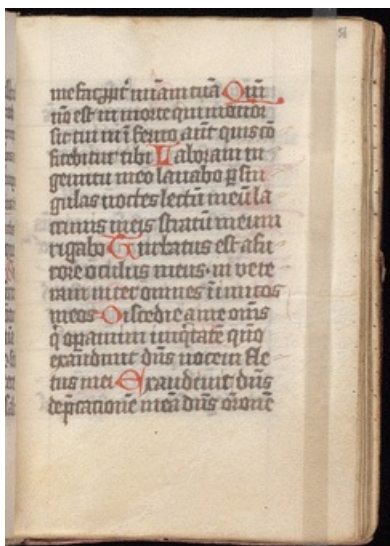 me fac ꝓpt̄ miam̄ tuā Qm̄
nō est in morte qui memor
sit tui in īferno aūt quis cō
fitebitur tibi Laboraui in
gemitu meo lauabo ꝑ sin
gulas noctes lectū meū la
crimis meis stratū meum
rigabo Turbatus est a fu
rore oculus meus · in vete
raui inter omnes īimicos
meos Discedite a me om̄s
q̄ oꝑamini iniq̇tatē qm̄
exaudiuit dn̄s vocem fle
tus mei Exaudiuit dn̄s
dep̄cationē meā dn̄s orōnē